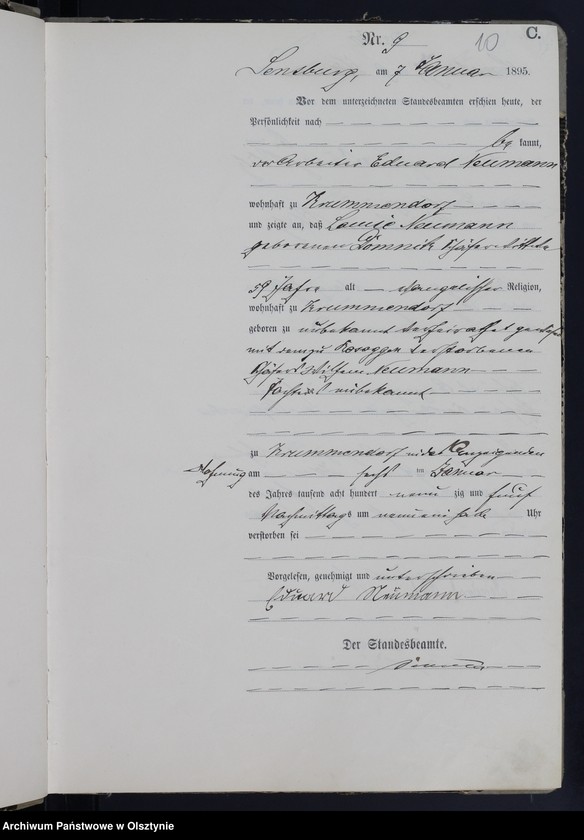 C.
Nr. 9
10
Sensburg, am 7 Januar 1895.
Vor dem unterzeichneten Standesbeamten erschien heute, der
Persönlichkeit nach
be kannt,
der Arbeiter Eduard Neumann
wohnhaft zu Krummendorf
und zeigte an, daß Louise Neumann
geborenen Domnik Schäferwittwe
59 Jahre alt evangelischer Religion,
wohnhaft zu Krummendorf
geboren zu unbekannt verheirathet gewesen
mit dem zu verstorbenen
Schäfer Neumann
Tochter unbekannt
zu Krummendorf in des Anzeigenden
Wohnung am sechs ten Januar
des Jahres tausend acht hundert neun zig und fünf
Nachmittags um neun Uhr
verstorben sei
Vorgelesen, genehmigt und unterschrieben
Eduard Neumann
Der Standesbeamte.
Archiwum Państwowe w Olsztynie